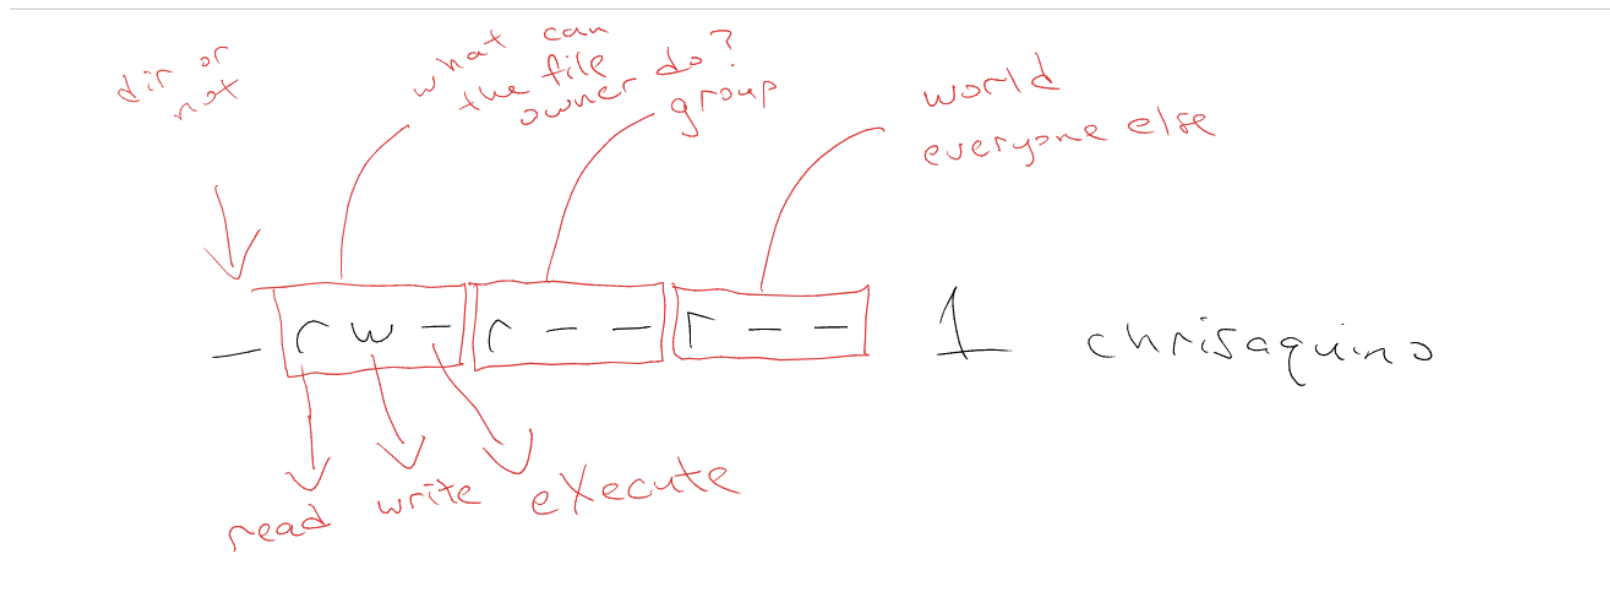 dir or
not
what can
the file
owner do?
group
world
everyone else
- rw- r-- r-- 1 chrisaquino
read write eXecute